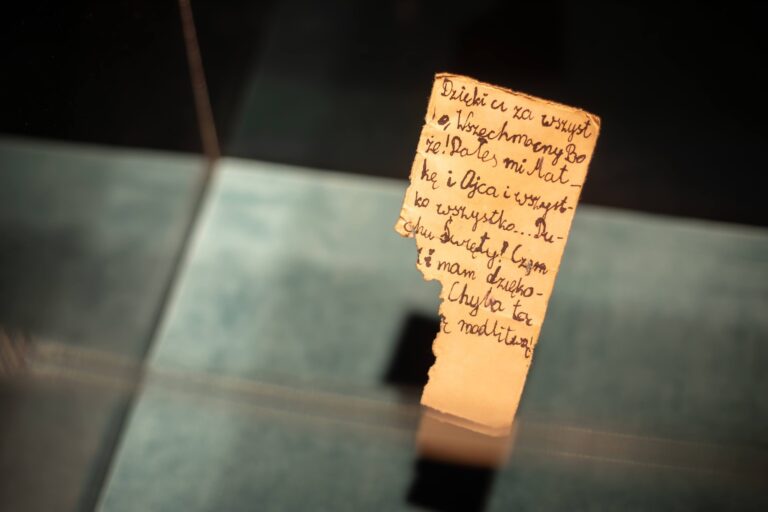 Dzięki ci za wszyst
o, Wszechmocny Bo
że! Dałeś mi Mat_
kę i Ojca i wszyst-
ko wszystko... Du-
chu Święty! Czym
Ci mam dzięko-
Chyba tą
ą modlitwą!